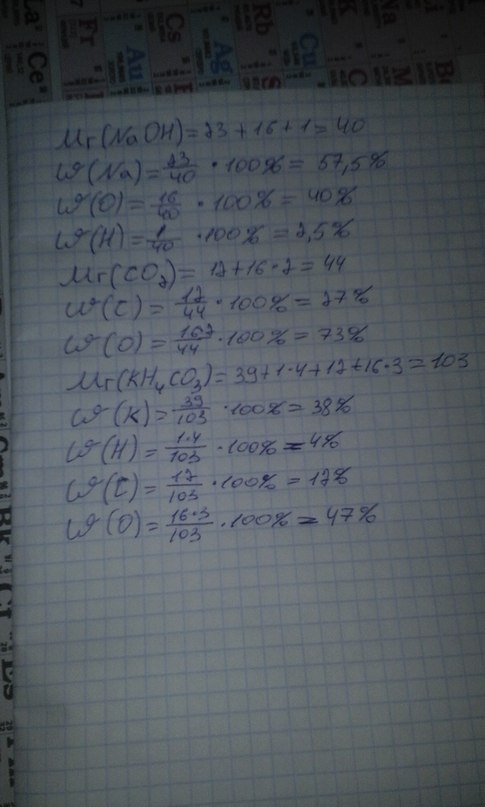 La
Fr
Cs
Rb
Na
Ce
Au
Ag
Cu
K
Mr(NaOH)=23+16+1=40
ω(Na)=23/40 · 100% = 57,5%
ω(O)=16/40 · 100% = 40%
ω(H)=1/40 · 100% = 2,5%
Mr(CO2)= 12+16·2=44
ω(C)= 12/44 · 100% = 27%
ω(O)= 16·2/44 · 100% = 73%
Mr(KH4CO3)=39+1·4+12+16·3=103
ω(K)=39/103 · 100% = 38%
ω(H)= 1·4/103 · 100% = 4%
ω(C)= 12/103 · 100% = 12%
ω(O)= 16·3/103 · 100% = 47%
Bk
Cf
Es